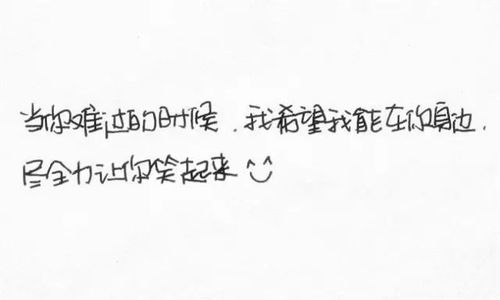 当你难过的时候，我希望我能在你身边，
尽全力让你笑起来 ^‿^